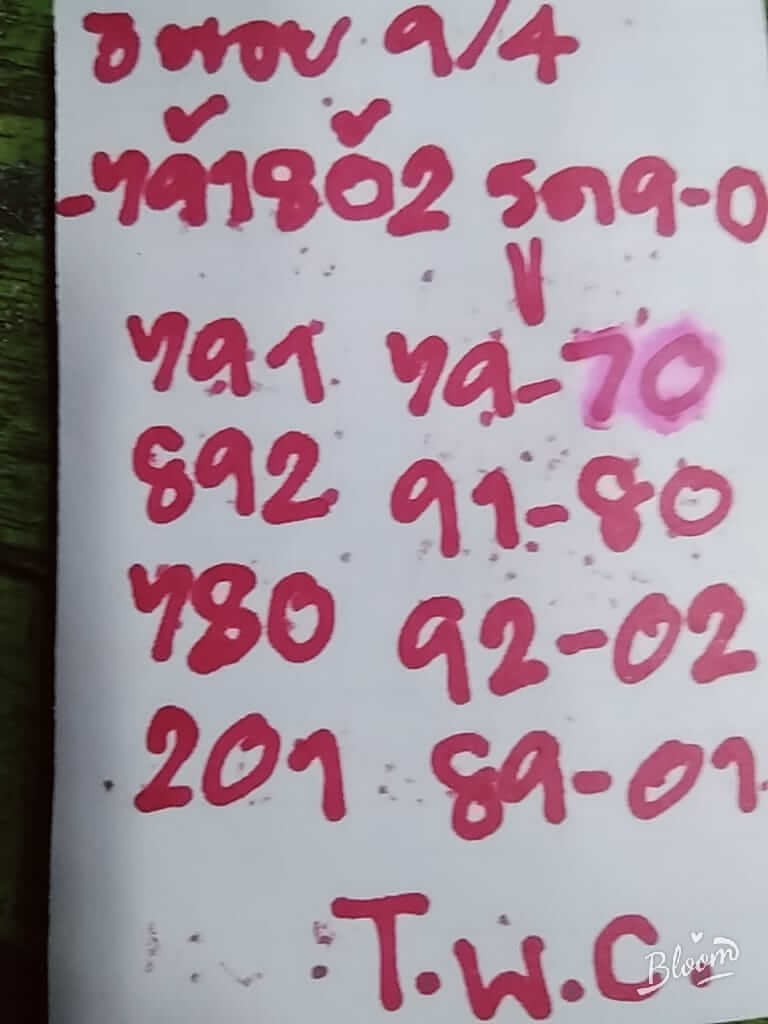 ฮานอย 9/4
-79่180่2 รูด9-0
791 79-70
892 91-80
780 92-02
201 89-01
T.พ.C.
Bloom